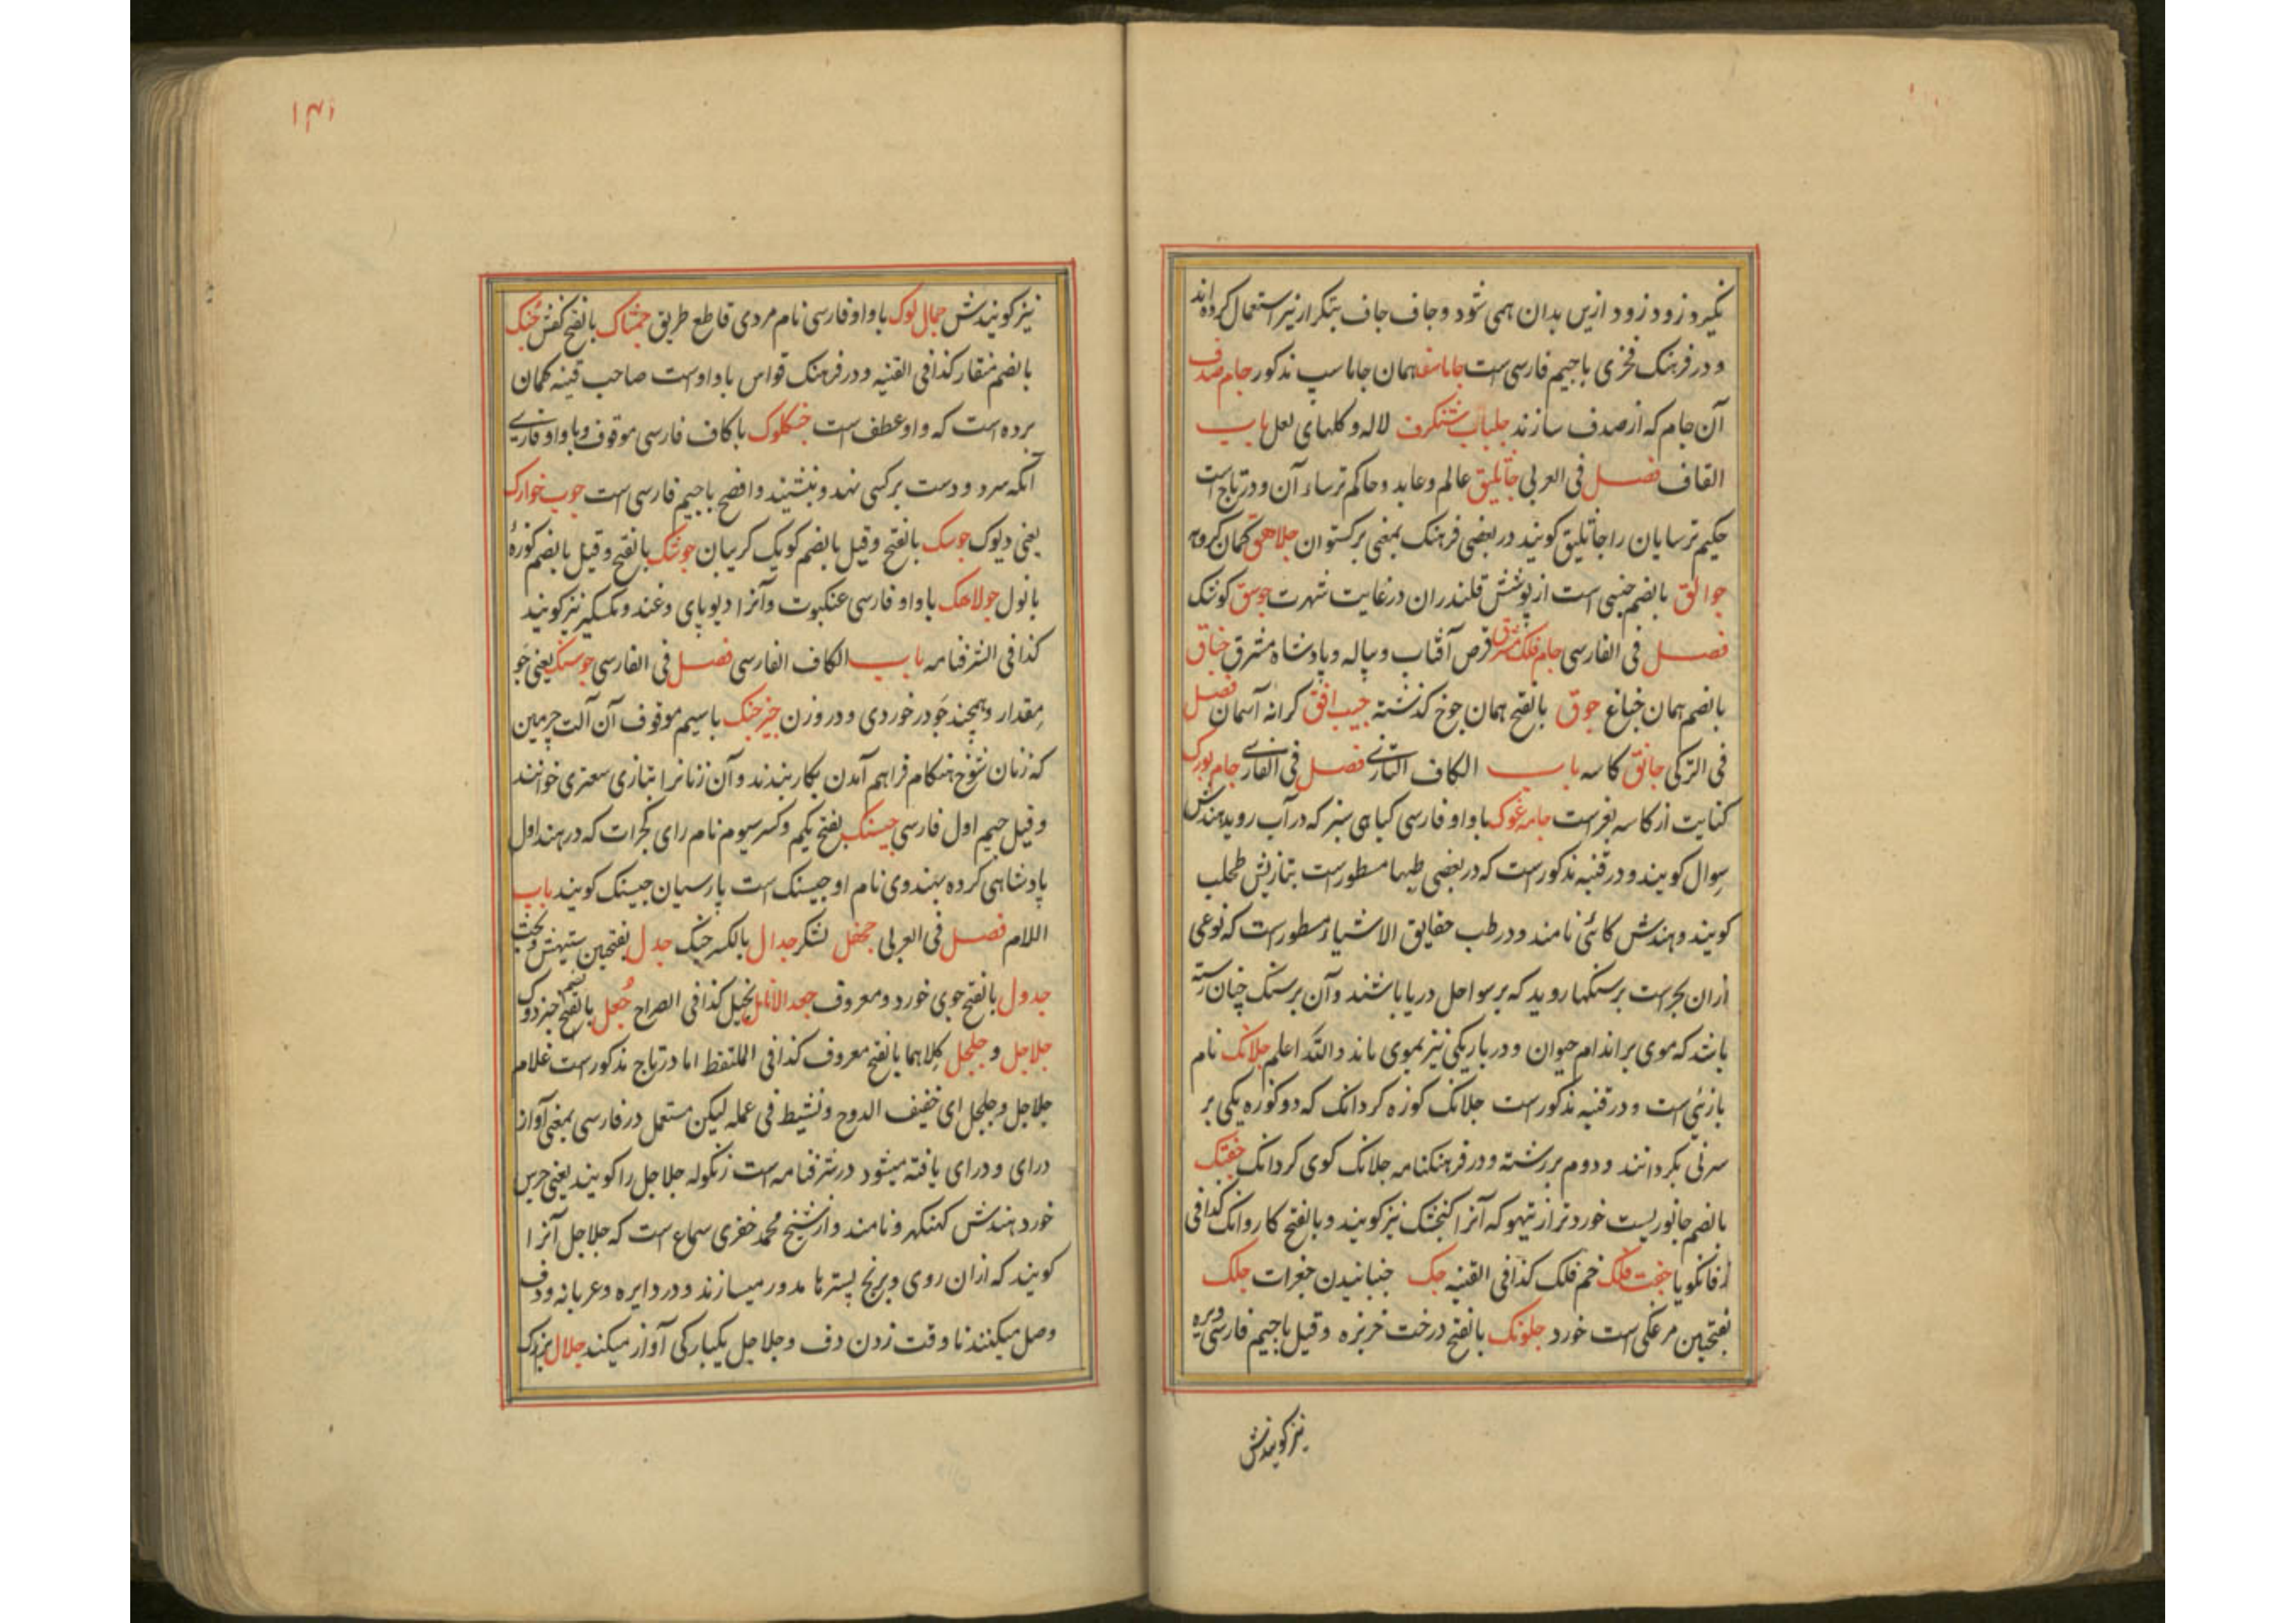 نکیرد زود زود ازین بدان همی شود و جاف جاف بتکرار نیز استعمال کرده اند
و در فرهنک فخری با جیم فارسی است جاماسف همان جاماسپ مذکور جام صدف
آن جام که از صدف سازند جلباب شنکرف لاله و کلهای لعل باب
القاف فصل فی العربی جاثلیق عالم و عابد و حاکم ترساء آن و در تاج است
حکیم ترسایان را جاثلیق کویند در بعضی فرهنک بمعنی برکستوان جلاهق کمان کروهه
جوالق بالضم جنسی است از پوشش قلندران در غایت شهرت جوسق کوشک
فصل فی الفارسی جام فلک مشرق قرص آفتاب و پیاله و پادشاه مشرق جناق
بالضم همان جناغ جوق بالفتح همان جوخ کذشته جیب افق کرانه آسمان فصل
فی الترکی جانق کاسه باب الکاف التازی فصل فی الفارسی جام بورک
کنایت از کاسه بغراست جامه غوک با واو فارسی کیاهی سبز که در آب روید هندش
سوال کویند و در قنیه مذکور است که در بعضی طبها مسطور است بتازیش طحلب
کویند و هندش کائی نامند و در طب حقایق الاشیاء مسطور است که نوعی
ازان بحر است بر سنکها روید که بر سواحل دریا باشند و آن بر سنک چنان رسته
باشد که موی بر اندام حیوان و در باریکی نیز بموی ماند والله اعلم جلانک نام
بازئی است و در قنیه مذکور است جلانک کوزه کردانک که دو کوزه یکی بر
سر نی بکردانند و دوم بر رشته و در فرهنکنامه جلانک کوی کردانک جفتک
بالضم جانوریست خوردتر از تیهو که آنرا کنجشک نیز کویند و بالفتح کاروانک کذا فی
زفانکویا جفت فلک خم فلک کذا فی القنیه جک جنبانیدن جغرات جلک
بفتحین مرغکی است خورد جلونک بالفتح درخت خربزه و قیل با جیم فارسی و بره
نیز کویندش
۱۴۱
نیز کویندش جمال لوک با واو فارسی نام مردی قاطع طریق جمشاک بالفتح کفش جنک
بالضم منقار کذا فی القنیه و در فرهنک قواس با واو است صاحب قنیه کمان
برده است که واو عطف است جنکلوک با کاف فارسی موقوف و با واو فارسی
آنکه سرد و دست بر کسی نهد و بنشیند و افصح با جیم فارسی است جوب خوارک
یعنی دیوک جوسک بالفتح و قیل بالضم کویک کریبان جوشک بالفتح و قیل بالضم کوزهٔ
با نول جولاهک با واو فارسی عنکبوت و آنرا دیوپای و غند و مکسکیر نیز کویند
کذا فی الشرفنامه باب الکاف الفارسی فصل فی الفارسی جوسنک یعنی جو
مقدار و همچند جو در خوردی و در وزن جیز جنک با سیم موقوف آن آلت چرمین
که زنان شوخ هنکام فراهم آمدن بکار بندند و آن زنانرا بتازی سعتری خوانند
و قیل جیم اول فارسی جیسنک بفتح یکم و کسر سیوم نام رای کجرات که در هند اول
پادشاهی کرده بهندوی نام او جیسنک است پارسیان جیسنک کویند باب
اللام فصل فی العربی جحفل لشکر جدال بالکسر جنک جدل بفتحین ستیهش و بحث
جدول بالفتح جوی خورد و معروف جعد الانامل بخیل کذا فی الصراح جعل بالضم خبزدوک
جلاجل و جلجل کلاهما بالفتح معروف کذا فی الملتقط اما در تاج مذکور است غلام
جلاجل و جلجل ای خفیف الروح و نشیط فی عمله لیکن مستعمل در فارسی بمعنی آواز
درای و درای یافته میشود در شرفنامه است زنکوله جلاجل را کویند یعنی جرس
خورد هندش کهنکهرو نامند و از شیخ محمد خضری سماع است که جلاجل آنرا
کویند که ازان روی و برنج پسترها مدور میسازند و در دایره و عربانه و دف
وصل میکنند تا وقت زدن دف و جلاجل یکبارکی آواز میکند جلال بزرک